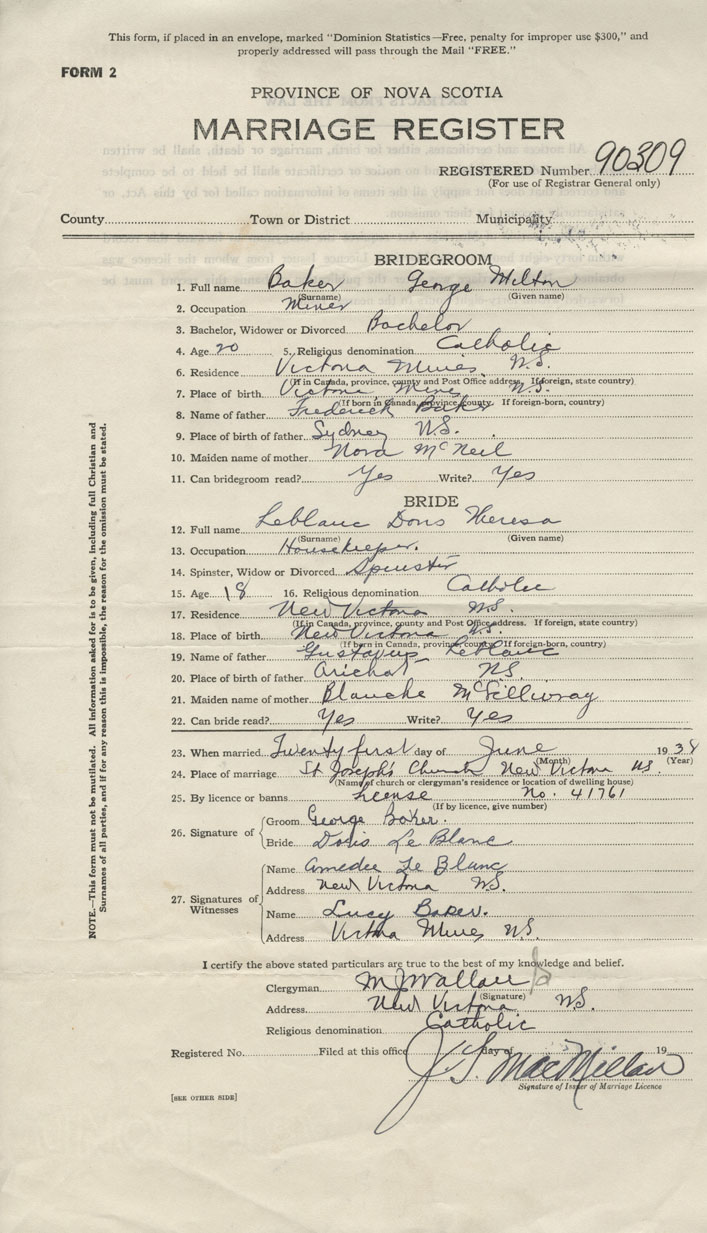 This form, if placed in an envelope, marked "Dominion Statistics—Free, penalty for improper use $300," and
properly addressed will pass through the Mail "FREE."
FORM 2
PROVINCE OF NOVA SCOTIA
MARRIAGE REGISTER
REGISTERED Number 90309
(For use of Registrar General only)
County Town or District Municipality
BRIDEGROOM
1. Full name Baker George Milton
(Surname) (Given name)
2. Occupation Miner
3. Bachelor, Widower or Divorced Bachelor
4. Age 20 5. Religious denomination Catholic
6. Residence Victoria Mines, N.S.
(If in Canada, province, county and Post Office address. If foreign, state country)
7. Place of birth Victoria Mines N.S.
(If born in Canada, province, county. If foreign-born, country)
8. Name of father Frederick Baker
9. Place of birth of father Sydney N.S.
10. Maiden name of mother Nora McNeil
11. Can bridegroom read? Yes Write? Yes
BRIDE
12. Full name Leblanc Doris Theresa
(Surname) (Given name)
13. Occupation Housekeeper.
14. Spinster, Widow or Divorced Spinster
15. Age 18 16. Religious denomination Catholic
17. Residence New Victoria N.S.
(If in Canada, province, county and Post Office address. If foreign, state country)
18. Place of birth New Victoria N.S.
(If born in Canada, province, county. If foreign-born, country)
19. Name of father Gustavus Leblanc
20. Place of birth of father Arichat NS
21. Maiden name of mother Blanche McGillivray
22. Can bride read? Yes Write? Yes
23. When married Twenty first day of June 1938
(Month) (Year)
24. Place of marriage St Joseph's Church New Victoria NS.
(Name of church or clergyman's residence or location of dwelling house)
25. By licence or banns License No. 41761
(If by licence, give number)
26. Signature of Groom George Baker.
Bride Doris Le Blanc
27. Signatures of Witnesses
Name Amedee Le Blanc
Address New Victoria N.S.
Name Lucy Baker.
Address Victoria Mines N.S.
I certify the above stated particulars are true to the best of my knowledge and belief.
Clergyman M J Wallace
(Signature)
Address New Victoria N.S.
Religious denomination Catholic
Registered No. Filed at this office day of 19
J. S. MacMillan
Signature of Issuer of Marriage Licence
[SEE OTHER SIDE]
NOTE.—This form must not be mutilated. All information asked for is to be given, including full Christian and
Surnames of all parties, and if for any reason this is impossible, the reason for the omission must be stated.